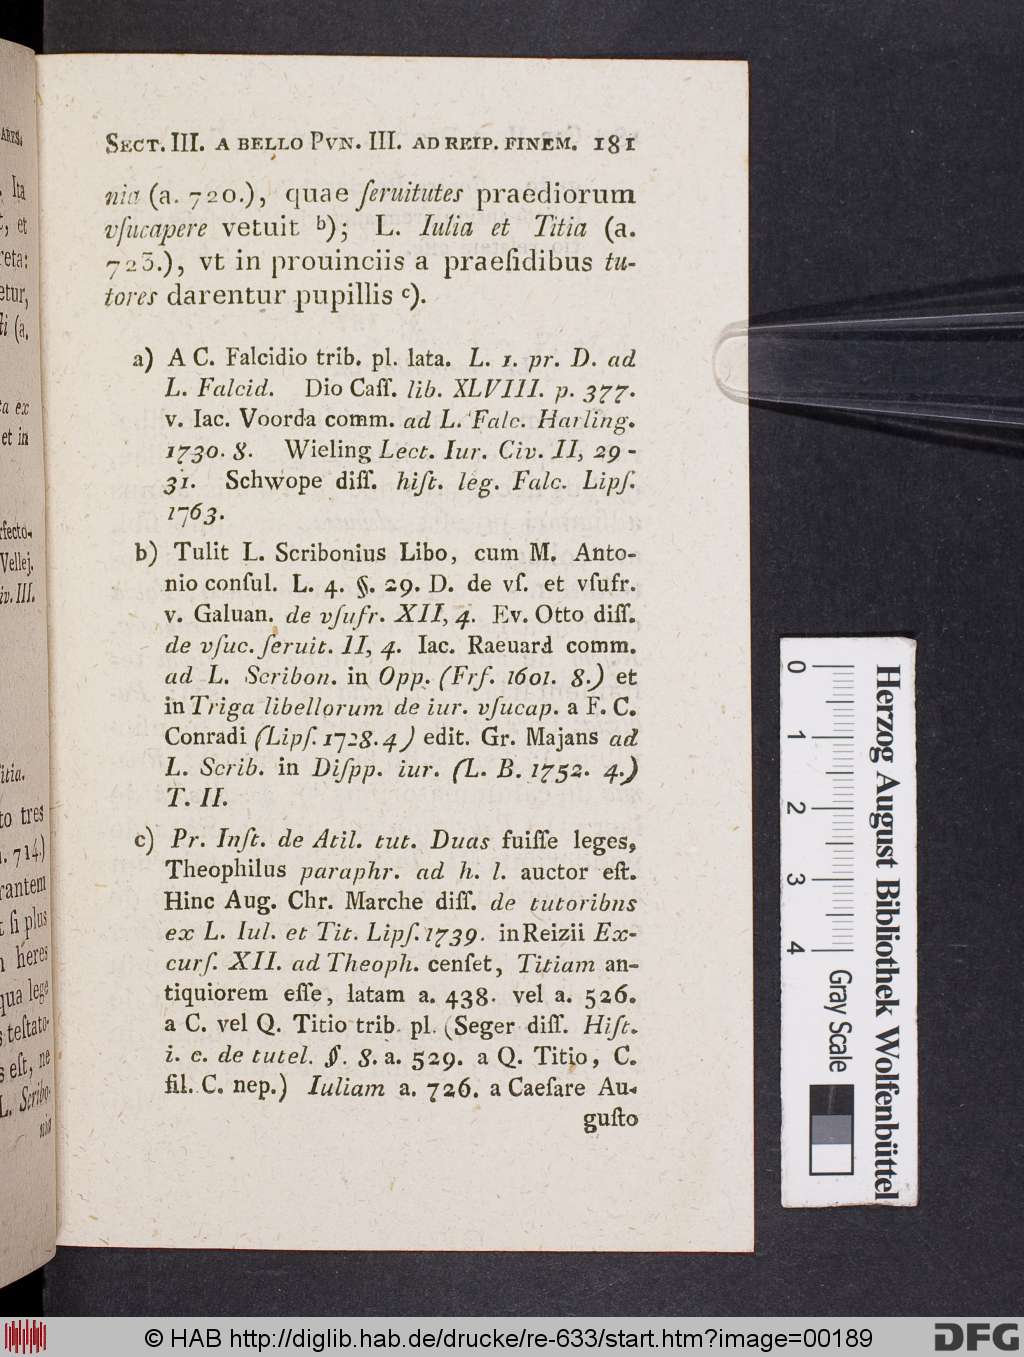 SECT. III. A BELLO PVN. III. AD REIP. FINEM. 181
nia (a. 720.), quae ſeruitutes praediorum
vſucapere vetuit b); L. Iulia et Titia (a.
723.), vt in prouinciis a praeſidibus tu-
tores darentur pupillis c).
a) A C. Falcidio trib. pl. lata. L. 1. pr. D. ad
L. Falcid. Dio Caſſ. lib. XLVIII. p. 377.
v. Iac. Voorda comm. ad L. Falc. Harling.
1730. 8. Wieling Lect. Iur. Civ. II, 29 -
31. Schwope diſſ. hiſt. leg. Falc. Lipſ.
1763.
b) Tulit L. Scribonius Libo, cum M. Anto-
nio conſul. L. 4. §. 29. D. de vſ. et vſufr.
v. Galuan. de vſufr. XII, 4. Ev. Otto diſſ.
de vſuc. ſeruit. II, 4. Iac. Raeuard comm.
ad L. Scribon. in Opp. (Frf. 1601. 8.) et
in Triga libellorum de iur. vſucap. a F. C.
Conradi (Lipſ. 1728. 4) edit. Gr. Majans ad
L. Scrib. in Diſpp. iur. (L. B. 1752. 4.)
T. II.
c) Pr. Inſt. de Atil. tut. Duas fuiſſe leges,
Theophilus paraphr. ad h. l. auctor eſt.
Hinc Aug. Chr. Marche diſſ. de tutoribns
ex L. Iul. et Tit. Lipſ. 1739. in Reizii Ex-
curſ. XII. ad Theoph. cenſet, Titiam an-
tiquiorem eſſe, latam a. 438. vel a. 526.
a C. vel Q. Titio trib. pl. (Seger diſſ. Hiſt.
i. c. de tutel. §. 8. a. 529. a Q. Titio, C.
fil. C. nep.) Iuliam a. 726. a Caeſare Au-
guſto
ARES.
Ita
et
reta:
etur,
(a.
ta ex
et in
rfecto-
Vellej.
iv. III.
itia.
to tres
. 714.)
rantem
ſi plus
heres
qua lege
teſtato-
s eſt, ne
L. Scribo-
nia
0 1 2 3 4
Gray Scale
Herzog August Bibliothek Wolfenbüttel
© HAB http://diglib.hab.de/drucke/re-633/start.htm?image=00189
DFG